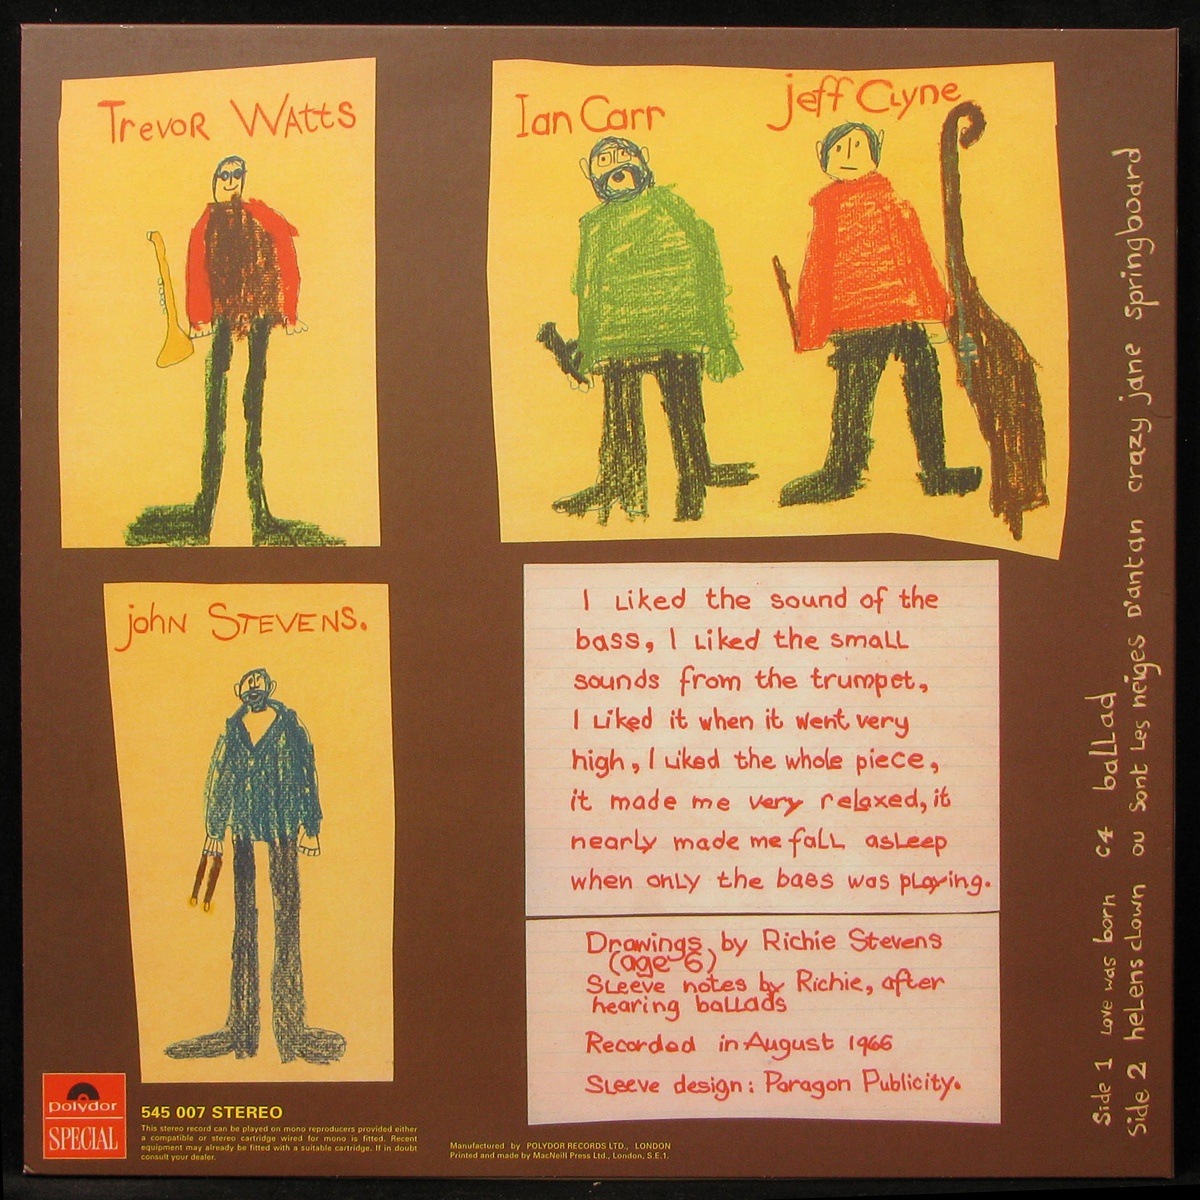 Trevor Watts
Ian Carr
jeff Clyne
john Stevens.
I Liked the sound of the
bass, I Liked the small
sounds from the trumpet,
I Liked it when it went very
high, I Liked the whole piece,
it made me very relaxed, it
nearly made me fall asleep
when only the bass was playing.
Drawings by Richie Stevens
(age 6)
Sleeve notes by Richie, after
hearing ballads
Recorded in August 1966
Sleeve design: Paragon Publicity.
Side 1 Love was born C4 ballad
Side 2 helens clown ou sont Les neiges D'antan crazy jane springboard
polydor
SPECIAL
545 007 STEREO
This stereo record can be played on mono reproducers provided either
a compatible or stereo cartridge wired for mono is fitted. Recent
equipment may already be fitted with a suitable cartridge. If in doubt
consult your dealer.
Manufactured by POLYDOR RECORDS LTD., LONDON
Printed and made by MacNeill Press Ltd., London, S.E.1.